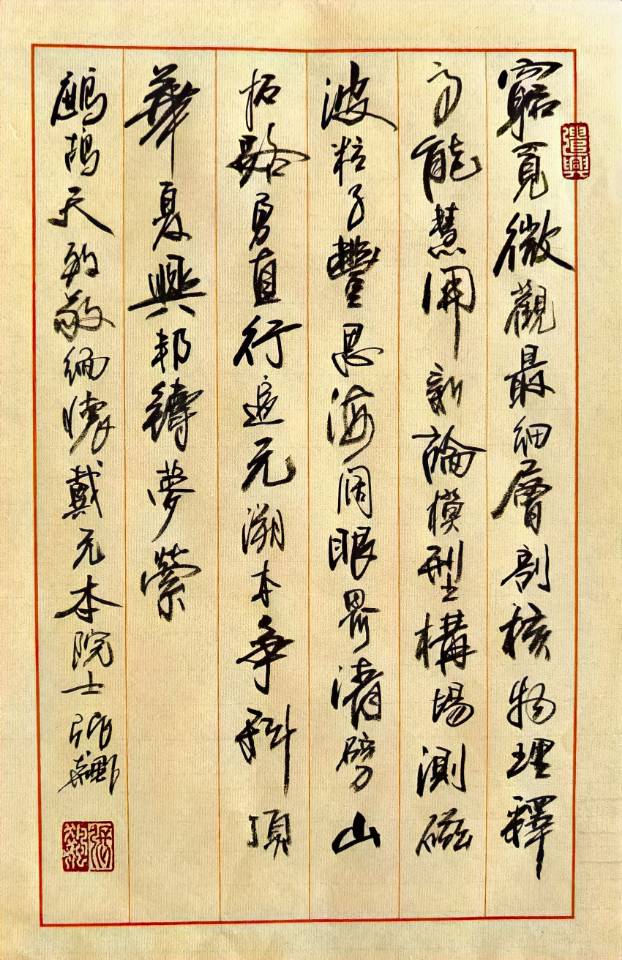 窮覓微觀最細層剖核物理釋
高能慧開新論模型構場測磁
波粒子豐思海闊眼界清劈山
拓路勇直行追元溯本爭科頂
華夏興邦鑄夢縈
鷓鴣天 敬緬懷戴元本院士 張